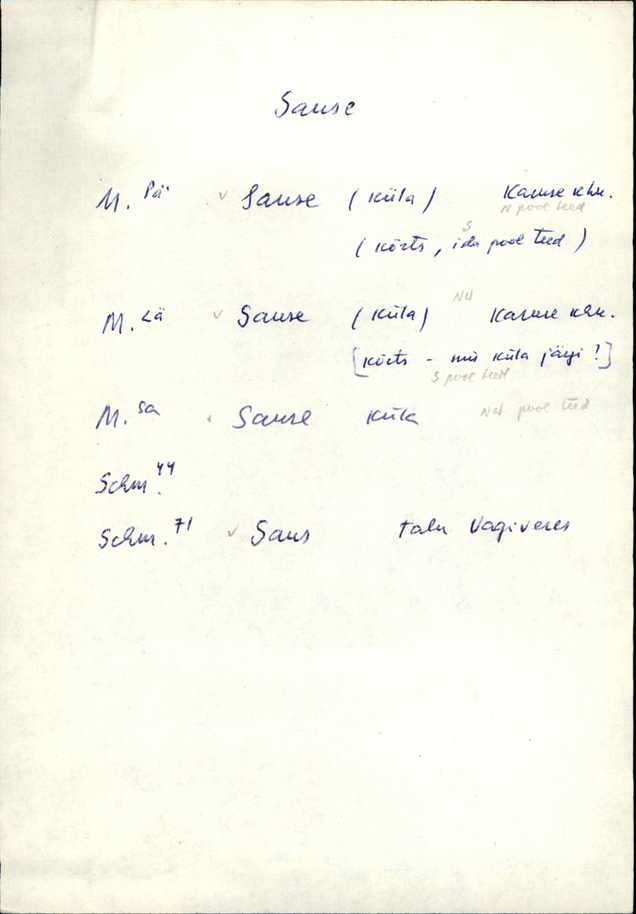 Sause
M. Pä v Sause (küla) Karuse khk.
N pool teed
S
(kõrts, ida pool teed)
NW
M. Lä v Sause (küla) Karuse khk.
[kõrts - mis küla järgi!]
S pool teed
M. Sa Sause küla NW pool teed
Schm. 44
Schm. 71 v Saus talu Vagiveres